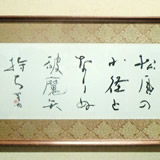 松原の
小径と
なりぬ
破魔矢
持ち